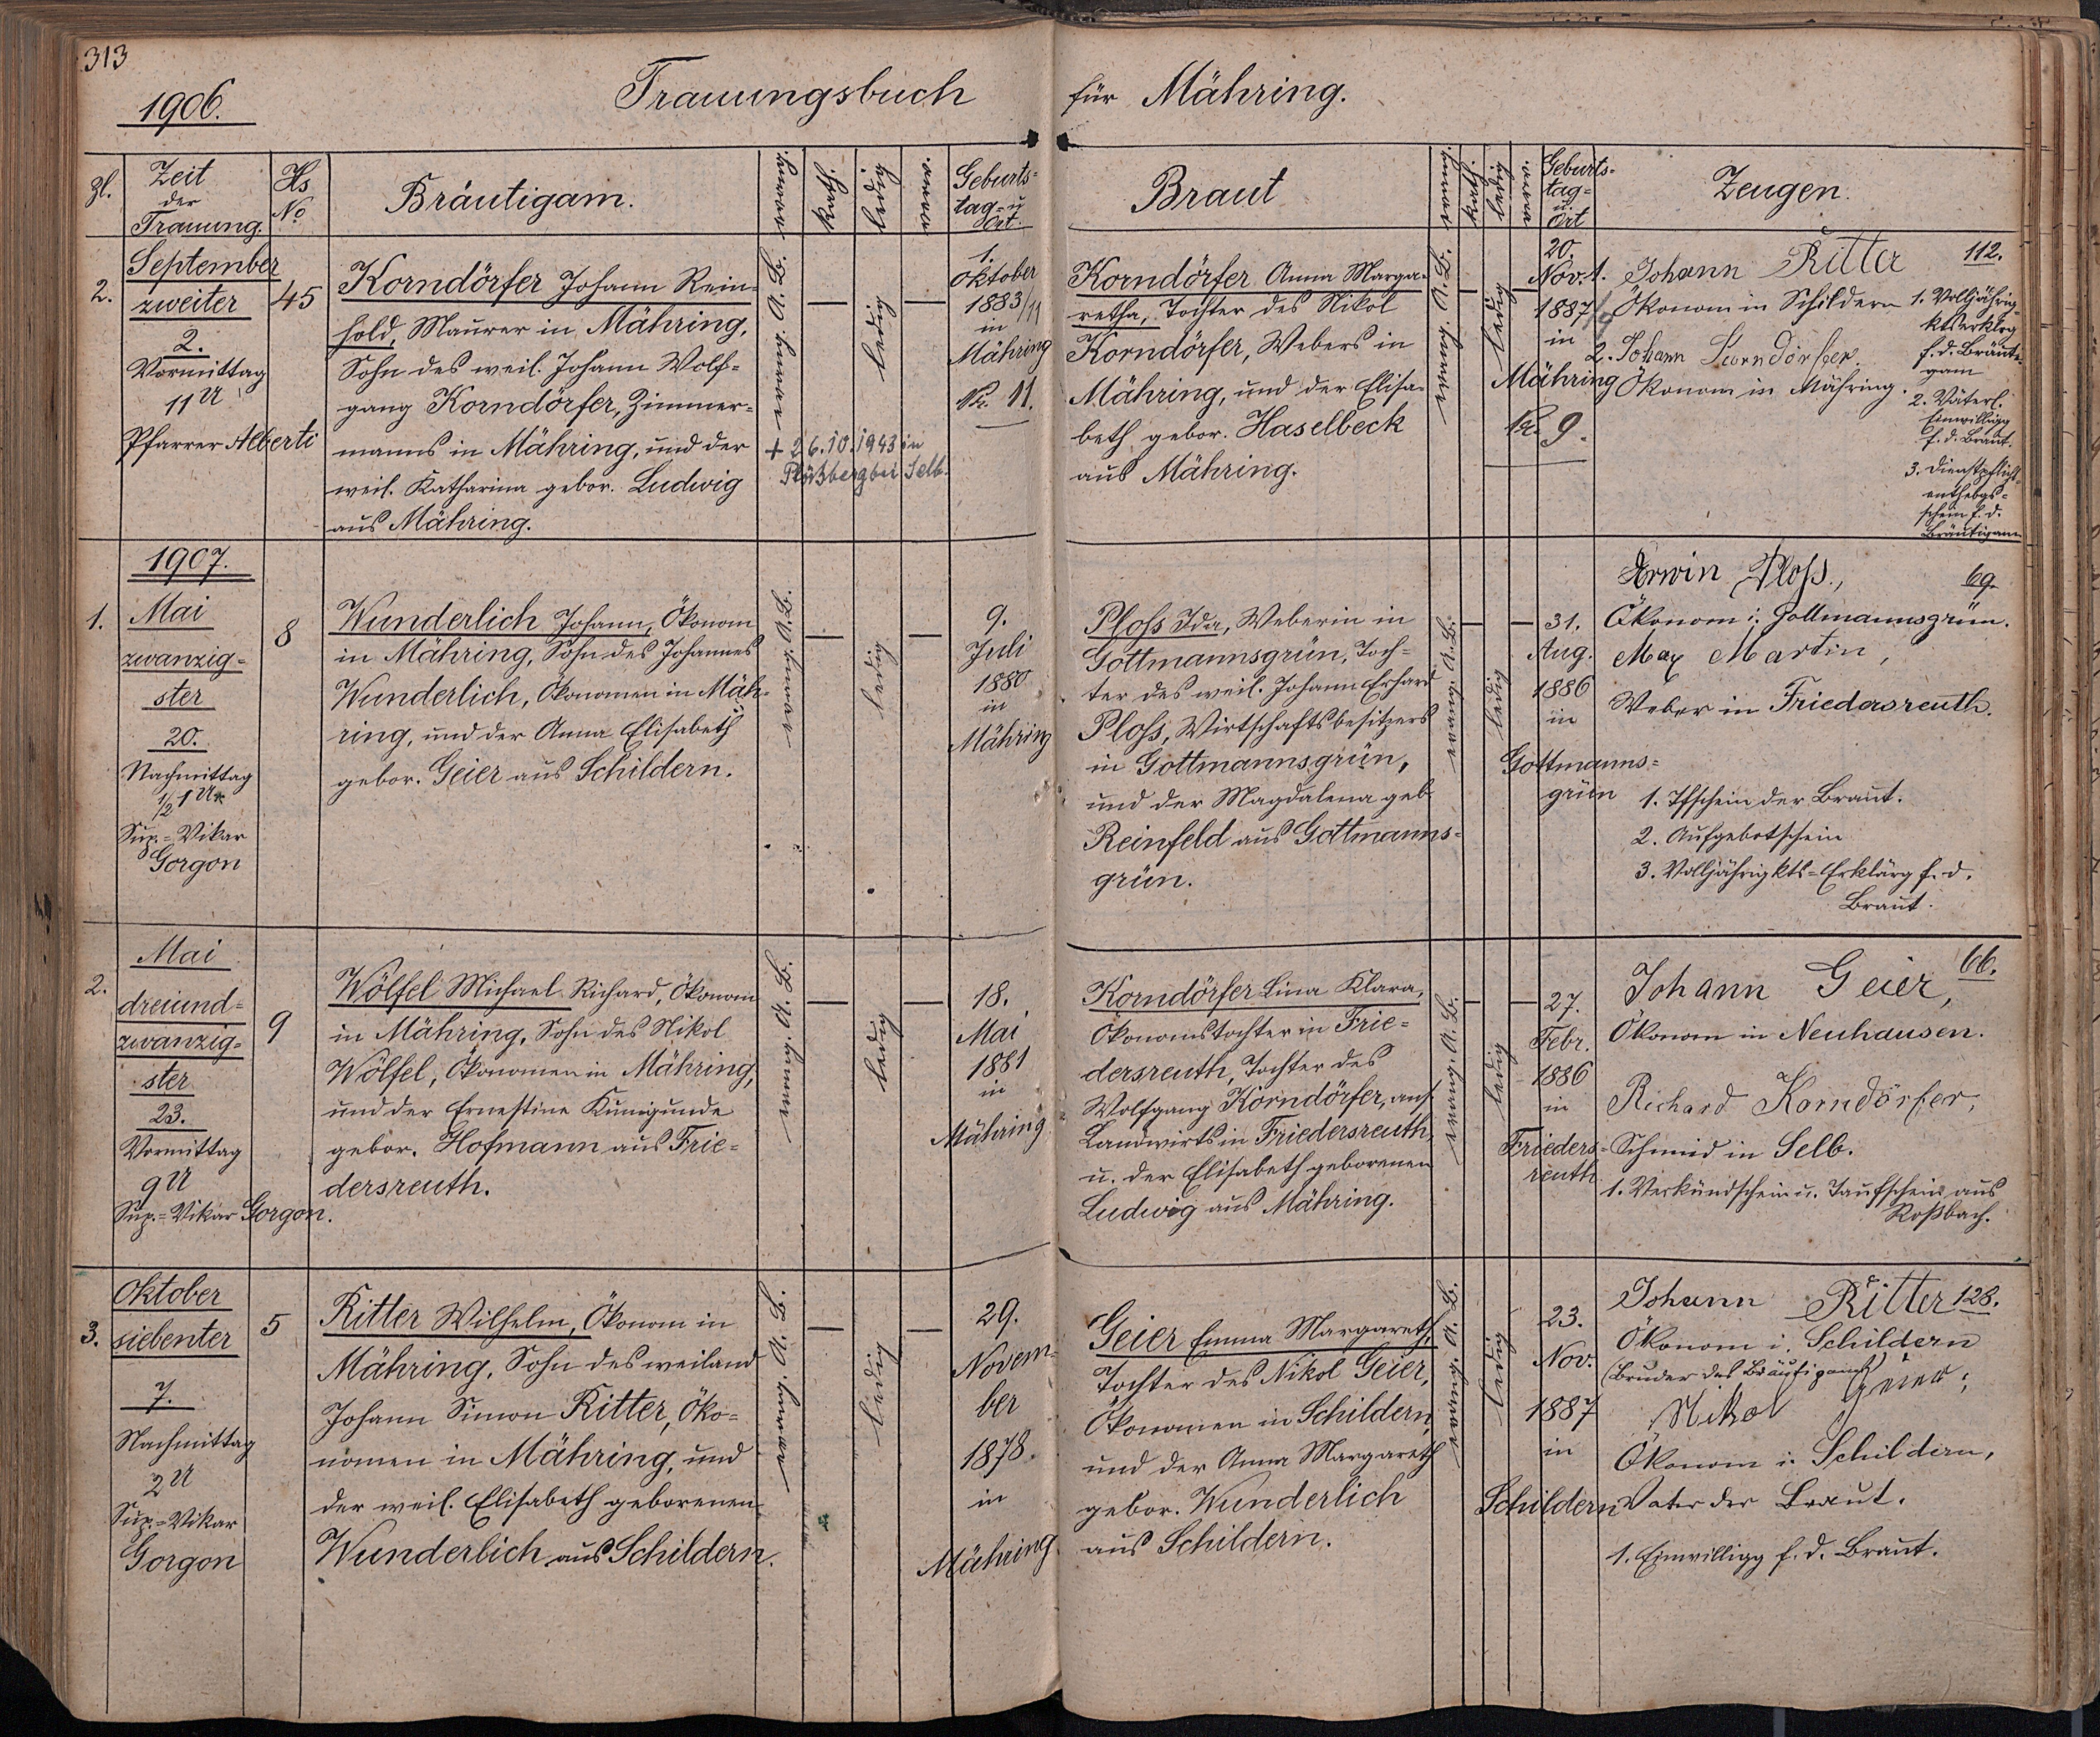 313
1906.
Trauungsbuch für Mähring.
Zl.
Zeit
der
Trauung.
Hs
No
Bräutigam.
evang.
kath.
ledig
verw.
Geburts-
tag- u
Ort.
Braut
evang.
kath.
ledig
verw.
Geburts-
tag-
u.
Ort
Zeugen.
2.
September
zweiter
2.
Vormittag
11 U
Pfarrer Alberti
45
Korndörfer Johann Rein-
hold, Maurer in Mähring,
Sohn des weil. Johann Wolf-
gang Korndörfer, Zimmer-
manns in Mähring, und der
weil. Katharina gebor. Ludwig
aus Mähring.
evang. A. B.
—
ledig
—
+ 26.10.1943 in
Plößberg bei Selb.
1.
Oktober
1883
in
Mähring
Nr. 11.
Korndörfer Anna Marga-
retha, Tochter des Nikol
Korndörfer, Webers in
Mähring, und der Elisa-
beth gebor. Haselbeck
aus Mähring.
evang. A. B.
—
ledig
—
20.
Nov.
1887
in
Mähring
Nr. 9.
1. Johann Ritter
Ökonom in Schildern
2. Johann Korndörfer
Ökonom in Mähring.
112.
1. Volljährig-
ktserklrg
f. d. Bräuti-
gam
2. Väterl.
Einwilligg
f. d. Braut.
3. Dienstpflicht-
enthebgs-
schein f. d.
Bräutigam
1907.
1.
Mai
zwanzig-
ster
20.
Nachmittag
1/2 1 U
Sup.-Vikar
Gorgon
8
Wunderlich Johann, Ökonom
in Mähring, Sohn des Johannes
Wunderlich, Ökonomen in Mäh-
ring, und der Anna Elisabeth
gebor. Geier aus Schildern.
evang. A. B.
—
ledig
—
9.
Juli
1880
in
Mähring
Ploss Ida, Weberin in
Gottmannsgrün, Toch-
ter des weil. Johann Erhard
Ploss, Wirtschaftsbesitzers
in Gottmannsgrün,
und der Magdalena geb.
Reinfeld aus Gottmanns-
grün.
evang. A. B.
—
ledig
—
31.
Aug.
1886
in
Gottmanns-
grün
Erwin Ploss,
69.
Ökonom i. Gottmannsgrün.
Max Martin,
Weber in Friedersreuth.
1. Tfschein der Braut.
2. Aufgebotschein
3. Volljährigkts-Erklärg f. d.
Braut.
2.
Mai
dreiund-
zwanzig-
ster
23.
Vormittag
9 U
Sup.-Vikar Gorgon.
9
Wölfel Michael Richard, Ökonom
in Mähring, Sohn des Nikol
Wölfel, Ökonomen in Mähring,
und der Ernestine Kunigunde
gebor. Hofmann aus Frie-
dersreuth.
evang. A. B.
—
ledig
—
18.
Mai
1881
in
Mähring
Korndörfer Lina Klara,
Ökonomstochter in Frie-
dersreuth, Tochter des
Wolfgang Korndörfer, ans.
Landwirts in Friedersreuth,
u. der Elisabeth geborenen
Ludwig aus Mähring.
evang. A. B.
—
ledig
—
27.
Febr.
1886
in
Frieders-
reuth
Johann Geier,
66.
Ökonom in Neuhausen.
Richard Korndörfer,
Schmid in Selb.
1. Verkündschein u. Taufschein aus
Roßbach.
3.
Oktober
siebenter
7.
Nachmittag
2 U
Sup.-Vikar
Gorgon
5
Ritter Wilhelm, Ökonom in
Mähring, Sohn des weiland
Johann Simon Ritter, Öko-
nomen in Mähring, und
der weil. Elisabeth geborenen
Wunderlich aus Schildern.
evang. A. B.
—
ledig
—
29.
Novem-
ber
1878.
in
Mähring.
Geier Emma Margareth,
Tochter des Nikol Geier,
Ökonomen in Schildern,
und der Anna Margareth
gebor. Wunderlich
aus Schildern.
evang. A. B.
ledig
23.
Nov.
1887
in
Schildern
Johann Ritter
128.
Ökonom i. Schildern
(Bruder des Bräutigams)
Nikol Geier,
Ökonom i. Schildern,
Vater der Braut.
1. Einwilligg f. d. Braut.